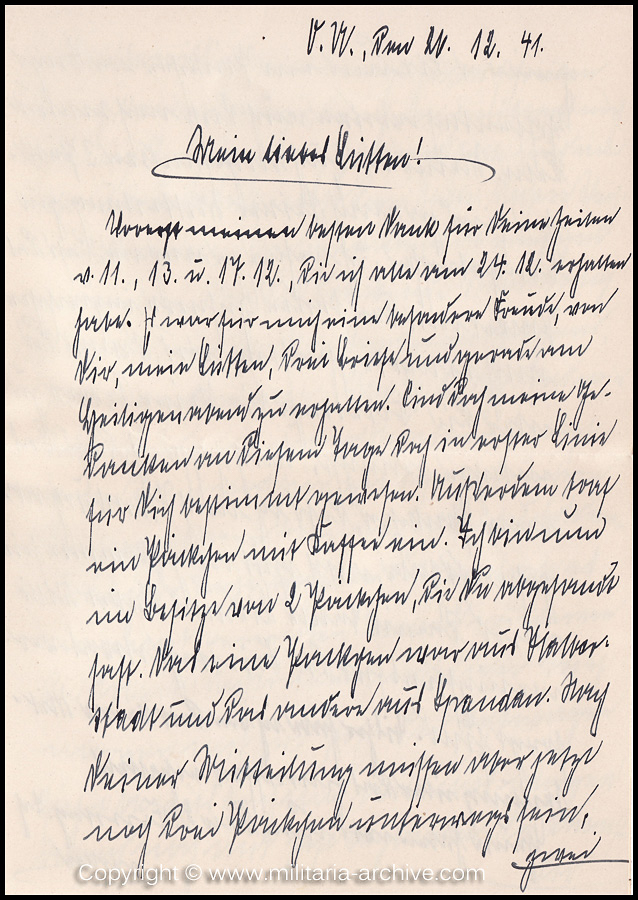 O. U., den 26. 12. 41.
Mein liebes Lütten!
Vorerst meinen besten Dank für Deine Zeilen
v. 11., 13. u. 17.12., die ich alle am 24.12. erhalten
habe. Es war für mich eine besondere Freude, von
Dir, mein Lütten, drei Briefe und gerade am
Heiligenabend zu erhalten. Sind doch meine Ge-
danken an diesem Tage doch in erster Linie
für Dich bestimmt gewesen. Außerdem traf
ein Päckchen mit Kaffee ein. Ich bin nun
im Besitze von 2 Päckchen, die Du abgesandt
hast. Das eine Päckchen war aus Halber-
stadt und das andere aus Spandau. Nach
Deiner Mitteilung müssen aber jetzt
noch drei Päckchen unterwegs sein,
zwei
Copyright © www.militaria-archive.com